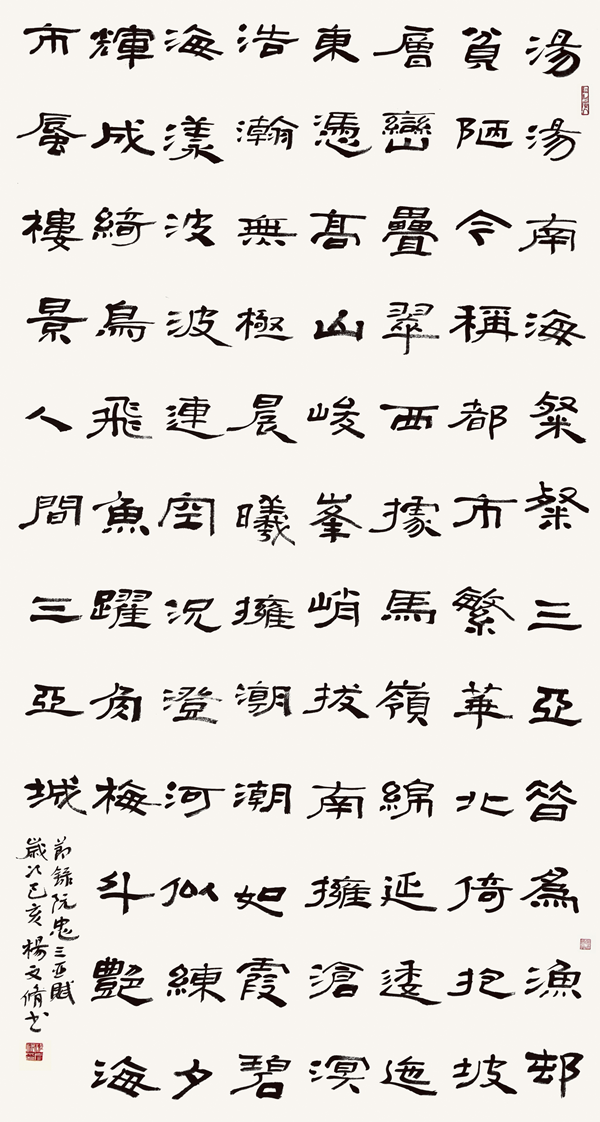 湯湯南海粲粲三亞昔為漁邨
貧陋今稱都市繁華北倚抱坡
層巒疊翠西據馬嶺綿延逶迤
東憑高山峻峯峭拔南擁滄溟
浩瀚無極晨曦擁潮潮如霞碧
海漾波波連空況澄河似練夕
輝成綺鳥飛魚躍角梅斗艷海
市蜃樓景人間三亞城
節錄阮忠三亞賦
歲次己亥楊文脩書